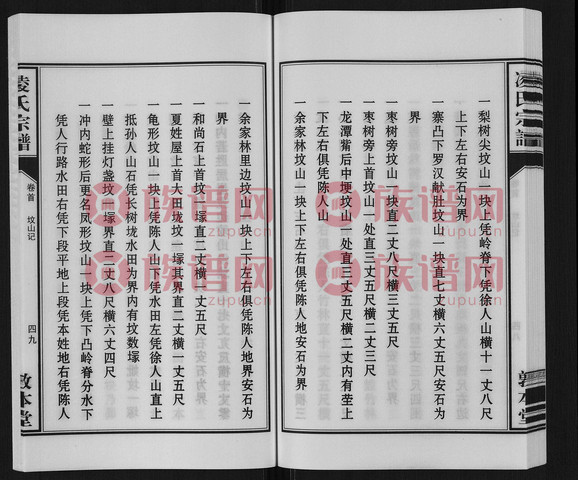 一梨树尖坟山一块上凭岭脊下凭徐人山横十一丈八尺
上下左右安石为界
一寨凸下罗汉献肚坟山一块直七丈横六丈五尺安石为
界
一枣树旁坟山一块直二丈八尺横三丈五尺
一枣树上首坟山一处直三丈五尺横二丈三尺
一龙潭觜后中埂坟山一处直三丈五尺横二丈内有茔上
下左右俱凭陈人山
一余家林坟山一块上下左右俱凭陈人地界安石为界
一余家林里边坟山一块上下左右俱凭陈人地界安石为
界
一和尚石上首坟一塚直二丈横一丈五尺
一夏姓屋上首大田垅坟一塚其界直二丈横一丈五尺
一龟形坟山一块上凭陈人山下凭水田左凭徐人山直上
抵孙人山石凭长树垅水田为界内有坟数塚
一壁上挂灯盏坟一塚界直二丈八尺横六丈四尺
一冲内蛇形后更名凤形坟山一块上凭下凸岭脊分水下
凭人行路水田右凭下段平地上段凭本姓地右凭陈人
凌氏宗譜
卷首
坟山记
四九
敦本堂
凌氏宗譜
敦本堂
族谱网
zupu.cn
族谱网
zupu.cn
族谱网
zupu.cn
族谱网
zupu.cn